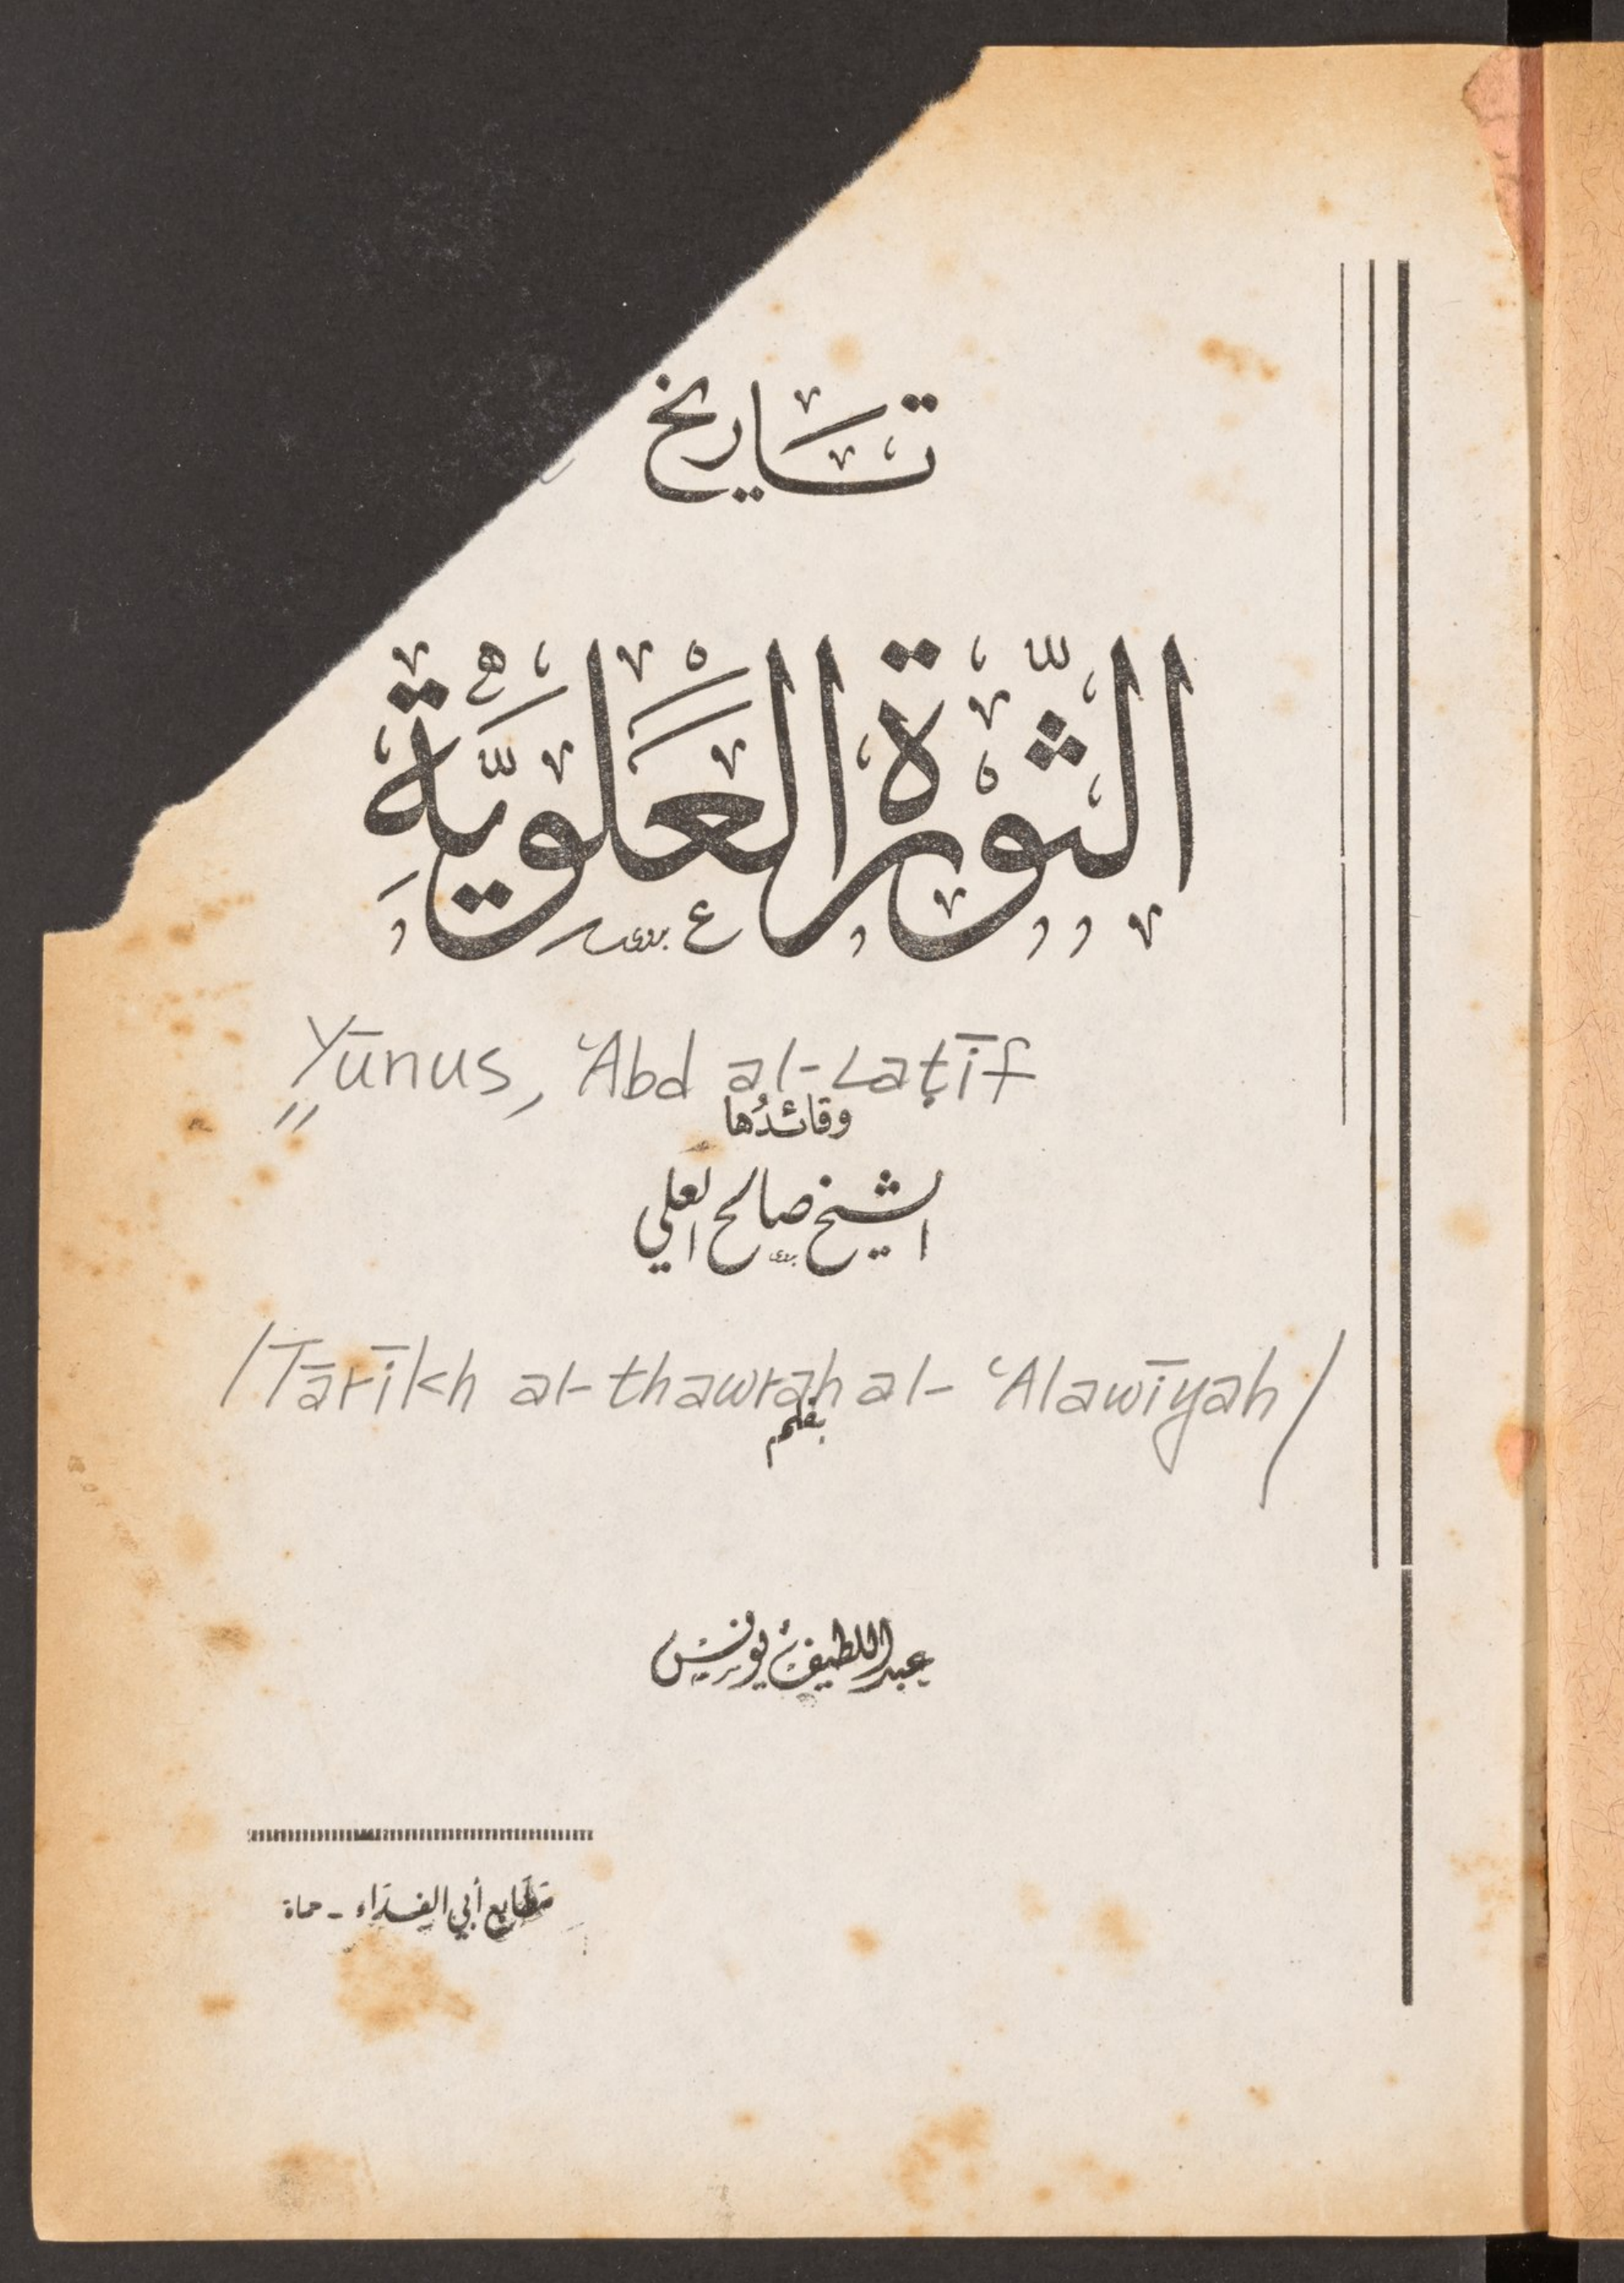 تاريخ
الثَّوْرَةُ العَلَوِيَّةُ
Yūnus, ʿAbd al-Laṭīf
وقائدُها
الشيخ صالح العلي
/Tārīkh al-thawrah al-ʿAlawīyah/
بقلم
عبد اللطيف يونس
مطابع أبي الفداء - حماة